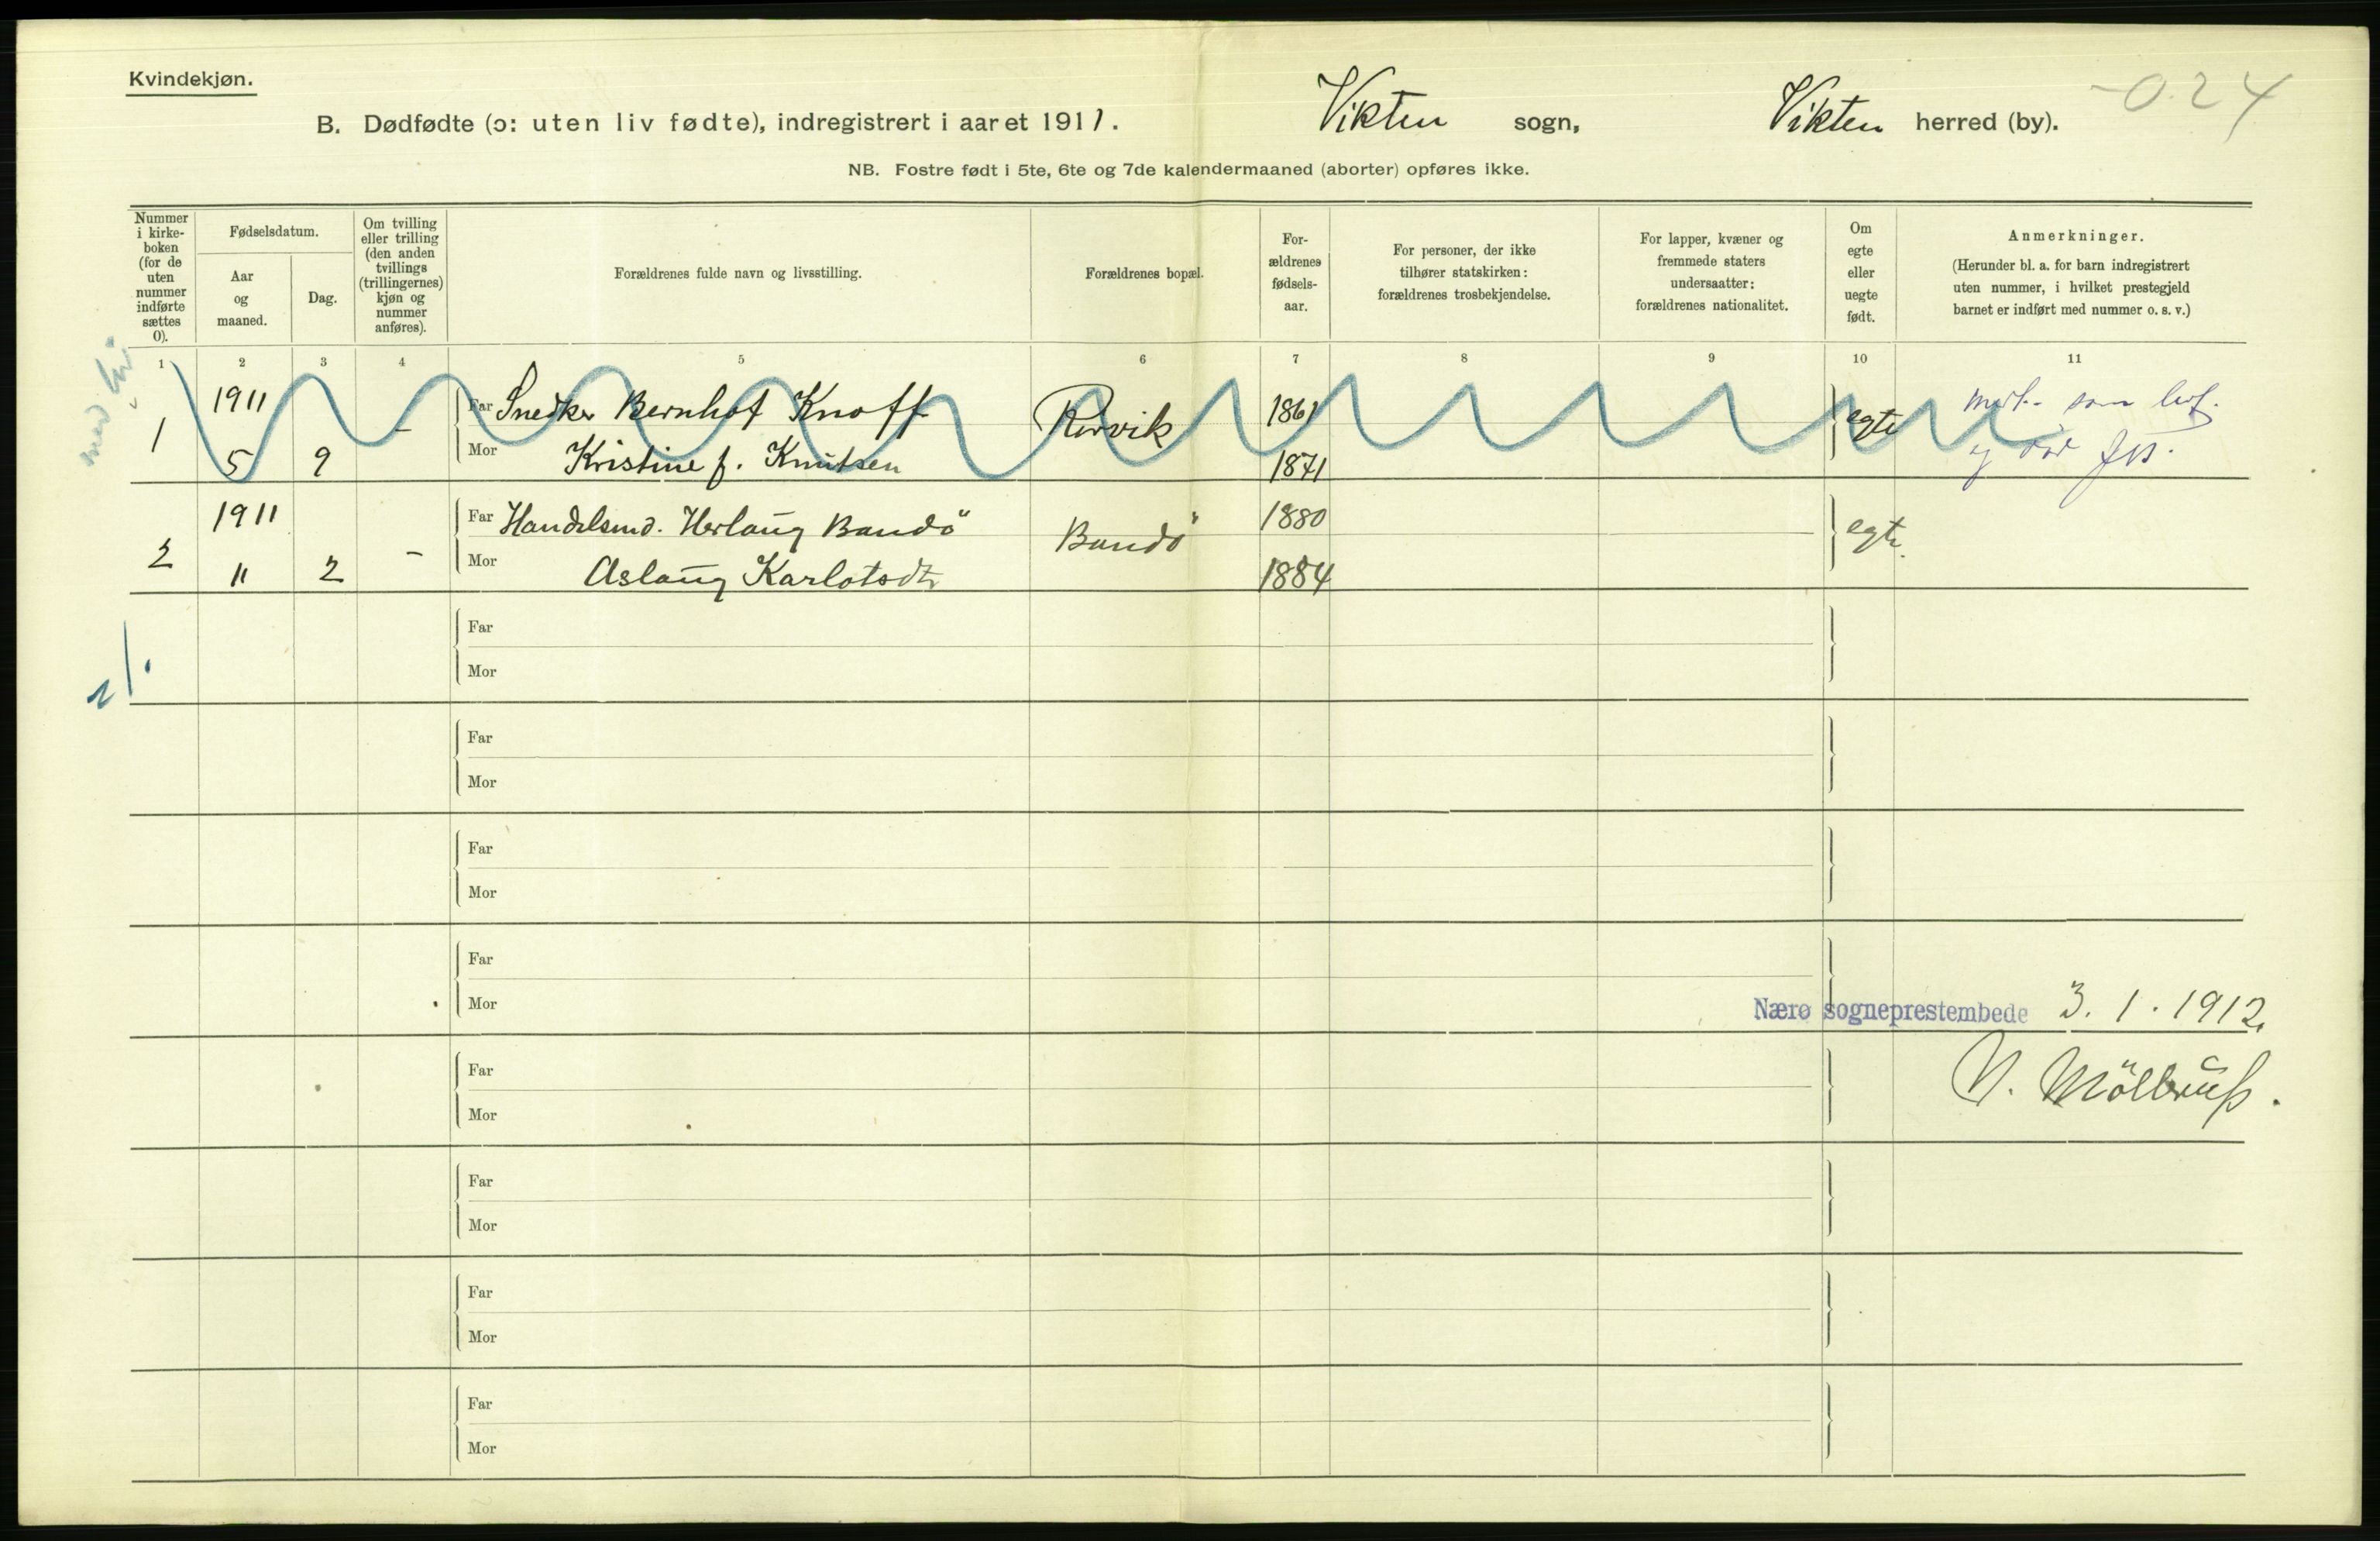 Kvindekjøn.
-0.24
B. Dødfødte (ɔ: uten liv fødte), indregistrert i aaret 1911. Vikten sogn, Vikten herred (by).
NB. Fostre født i 5te, 6te og 7de kalendermaaned (aborter) opføres ikke.
Nummer
i kirke-
boken
(for de
uten
nummer
indførte
sættes
0).
Fødselsdatum.
Aar
og
maaned.
Dag.
Om tvilling
eller trilling
(den anden
tvillings
(trillingernes)
kjøn og
nummer
anføres).
Forældrenes fulde navn og livsstilling.
Forældrenes bopæl.
For-
ældrenes
fødsels-
aar.
For personer, der ikke
tilhører statskirken:
forældrenes trosbekjendelse.
For lapper, kvæner og
fremmede staters
undersaatter:
forældrenes nationalitet.
Om
egte
eller
uegte
født.
Anmerkninger.
(Herunder bl. a. for barn indregistrert
uten nummer, i hvilket prestegjeld
barnet er indført med nummer o. s. v.)
1 2 3 4 5 6 7 8 9 10 11
1 1911 5 9 -
Far Snedker Bernhof Knoff
Mor Kristine f. Knutsen
Rørvik
1861
1871
egte
som
2 1911 11 2 -
Far Handelsmd. Herlaug Bandö
Mor Aslaug Karlotsdtr
Bandö
1880
1884
egte.
Far
Mor
Far
Mor
Far
Mor
Far
Mor
Nærø sogneprestembede 3. 1. 1912.
Far
Mor
Far
Mor
Far
Mor
Far
Mor